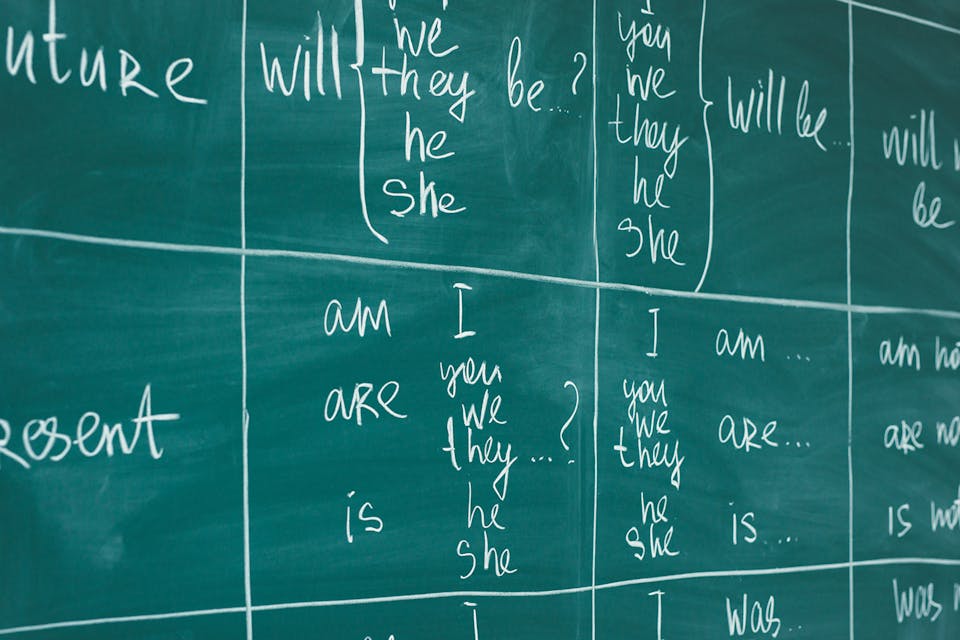 you
we
they
he
she
will
be...?
I
you
we
they
he
she
will be...
will n
be
uture
am I
are you
we
they...?
is he
she
I am ...
you
we are...
they
he is ....
she
am no
are no
is not
resent
I
I was...
was n